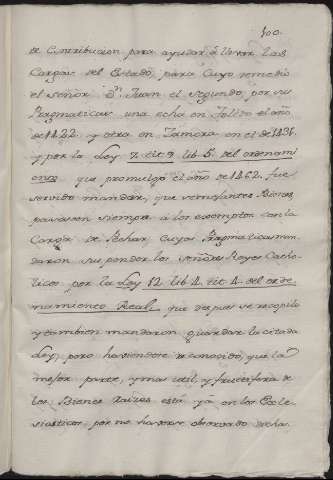 100.
de Contribucion para ayudar à llevar las
Cargas del Estado, para cuyo remedio
el señor Dn. Juan el segundo por su
Pragmaticas una echa en Toledo el año
de 1422. y otra en Zamora en el de 1431.
y por la Ley 7. tit 9. lib 5. del ordenami
ento que promulgó el año de 1462. fue
servido mandar, que semejantes Bienes
pasasen siempre à los exemptos con la
Carga de Pechar, cuyas Pragmaticas man
daron suspender los señores Reyes Catho
licos por la Ley 12 lib 4. tit 4. del orde
namiento Real, que despues se recopilo
y tambien mandaron guardar la citada
Ley, pero haviendose reconocido, que la
mejor parte, y mas util, y fructifera de
los Bienes raizes está yà en los Ecle
siasticos, por no haverse observado dicha